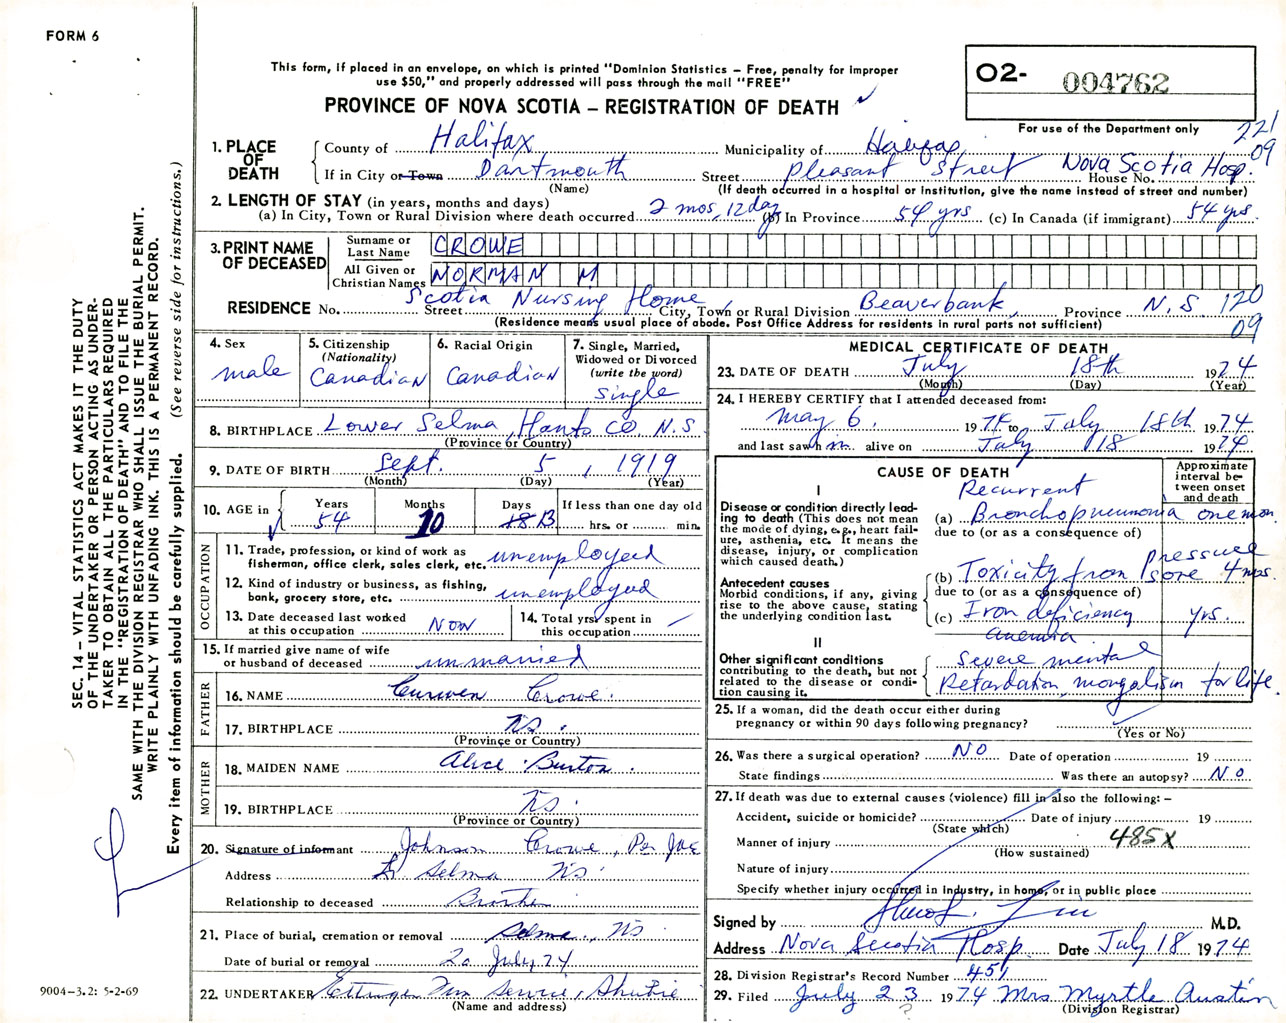 FORM 6
This form, if placed in an envelope, on which is printed "Dominion Statistics – Free, penalty for improper
use $50," and properly addressed will pass through the mail "FREE"
PROVINCE OF NOVA SCOTIA – REGISTRATION OF DEATH
O2- 004762
For use of the Department only
221
09
1. PLACE OF DEATH
County of Halifax Municipality of Halifax
If in City or Town Dartmouth Street Pleasant Street House No. Nova Scotia Hosp.
(Name) (If death occurred in a hospital or institution, give the name instead of street and number)
2. LENGTH OF STAY (in years, months and days)
(a) In City, Town or Rural Division where death occurred 2 mos, 12 day (b) In Province 54 yrs (c) In Canada (if immigrant) 54 yrs
3. PRINT NAME OF DECEASED
Surname or Last Name CROWE
All Given or Christian Names NORMAN M
RESIDENCE No. Street Scotia Nursing Home City, Town or Rural Division Beaverbank, Province N.S 120
09
(Residence means usual place of abode. Post Office Address for residents in rural parts not sufficient)
4. Sex male
5. Citizenship (Nationality) Canadian
6. Racial Origin Canadian
7. Single, Married, Widowed or Divorced (write the word) single
8. BIRTHPLACE Lower Selma, Hants Co. N.S
(Province or Country)
9. DATE OF BIRTH Sept. 5, 1919
(Month) (Day) (Year)
10. AGE in Years 54 Months 10 Days 18 13 If less than one day old hrs. or min.
OCCUPATION
11. Trade, profession, or kind of work as
fisherman, office clerk, sales clerk, etc. unemployed
12. Kind of industry or business, as fishing,
bank, grocery store, etc. unemployed
13. Date deceased last worked
at this occupation Now
14. Total yrs spent in
this occupation
15. If married give name of wife
or husband of deceased unmarried
FATHER
16. NAME Curwen Crowe
17. BIRTHPLACE NS.
(Province or Country)
MOTHER
18. MAIDEN NAME Alice Burton.
19. BIRTHPLACE NS.
(Province or Country)
20. Signature of informant Johnson Crowe, Per
Address Lr Selma NS.
Relationship to deceased Brother
21. Place of burial, cremation or removal Selma, NS
Date of burial or removal 20 July 74
22. UNDERTAKER Ettinger Fun Service, Shubie
(Name and address)
MEDICAL CERTIFICATE OF DEATH
23. DATE OF DEATH July 18th 1974
(Month) (Day) (Year)
24. I HEREBY CERTIFY that I attended deceased from:
May 6. 1974 to July 18th 1974.
and last saw him alive on July 18 1974
CAUSE OF DEATH
Approximate interval between onset and death
I
Disease or condition directly leading to death (This does not mean the mode of dying, e.g., heart failure, asthenia, etc. It means the disease, injury, or complication which caused death.)
Recurrent
(a) Bronchopneumonia one mon
due to (or as a consequence of)
Antecedent causes
Morbid conditions, if any, giving rise to the above cause, stating the underlying condition last.
(b) Toxicity from Pressure sore 4 mos.
due to (or as a consequence of)
(c) Iron deficiency anemia yrs.
II
Other significant conditions
contributing to the death, but not related to the disease or condition causing it.
Severe mental
Retardation, mongolism for life.
25. If a woman, did the death occur either during
pregnancy or within 90 days following pregnancy?
(Yes or No)
26. Was there a surgical operation? NO Date of operation 19
State findings Was there an autopsy? NO
27. If death was due to external causes (violence) fill in also the following: –
Accident, suicide or homicide? Date of injury 19
(State which)
Manner of injury 485X
(How sustained)
Nature of injury
Specify whether injury occurred in Industry, in home, or in public place
Signed by M.D.
Address Nova Scotia Hosp. Date July 18 1974
28. Division Registrar's Record Number 451
29. Filed July 23 1974 Mrs Myrtle Austin
(Division Registrar)
SEC. 14 – VITAL STATISTICS ACT MAKES IT THE DUTY
OF THE UNDERTAKER OR PERSON ACTING AS UNDER-
TAKER TO OBTAIN ALL THE PARTICULARS REQUIRED
IN THE "REGISTRATION OF DEATH" AND TO FILE THE
SAME WITH THE DIVISION REGISTRAR WHO SHALL ISSUE THE BURIAL PERMIT.
WRITE PLAINLY WITH UNFADING INK. THIS IS A PERMANENT RECORD.
Every item of information should be carefully supplied. (See reverse side for instructions.)
9004-3.2: 5-2-69